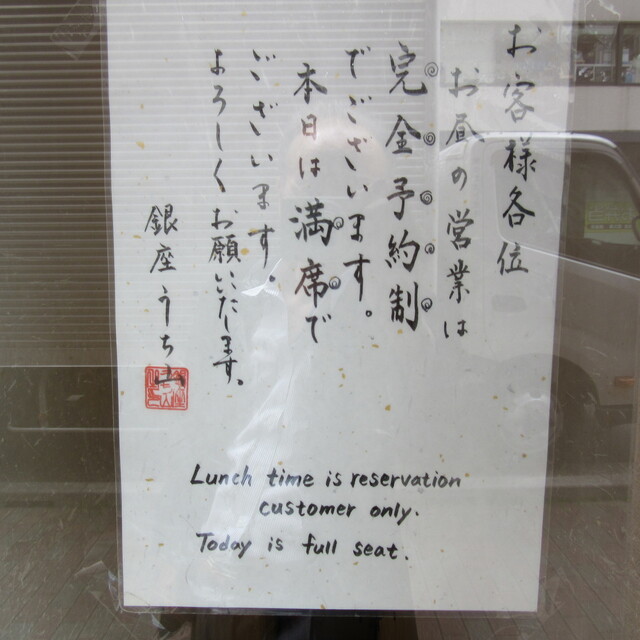 お客様各位
お昼の営業は
完全予約制
でございます。
本日は満席で
ございます。
よろしくお願いいたします。
銀座うち山
Lunch time is reservation
customer only.
Today is full seat.